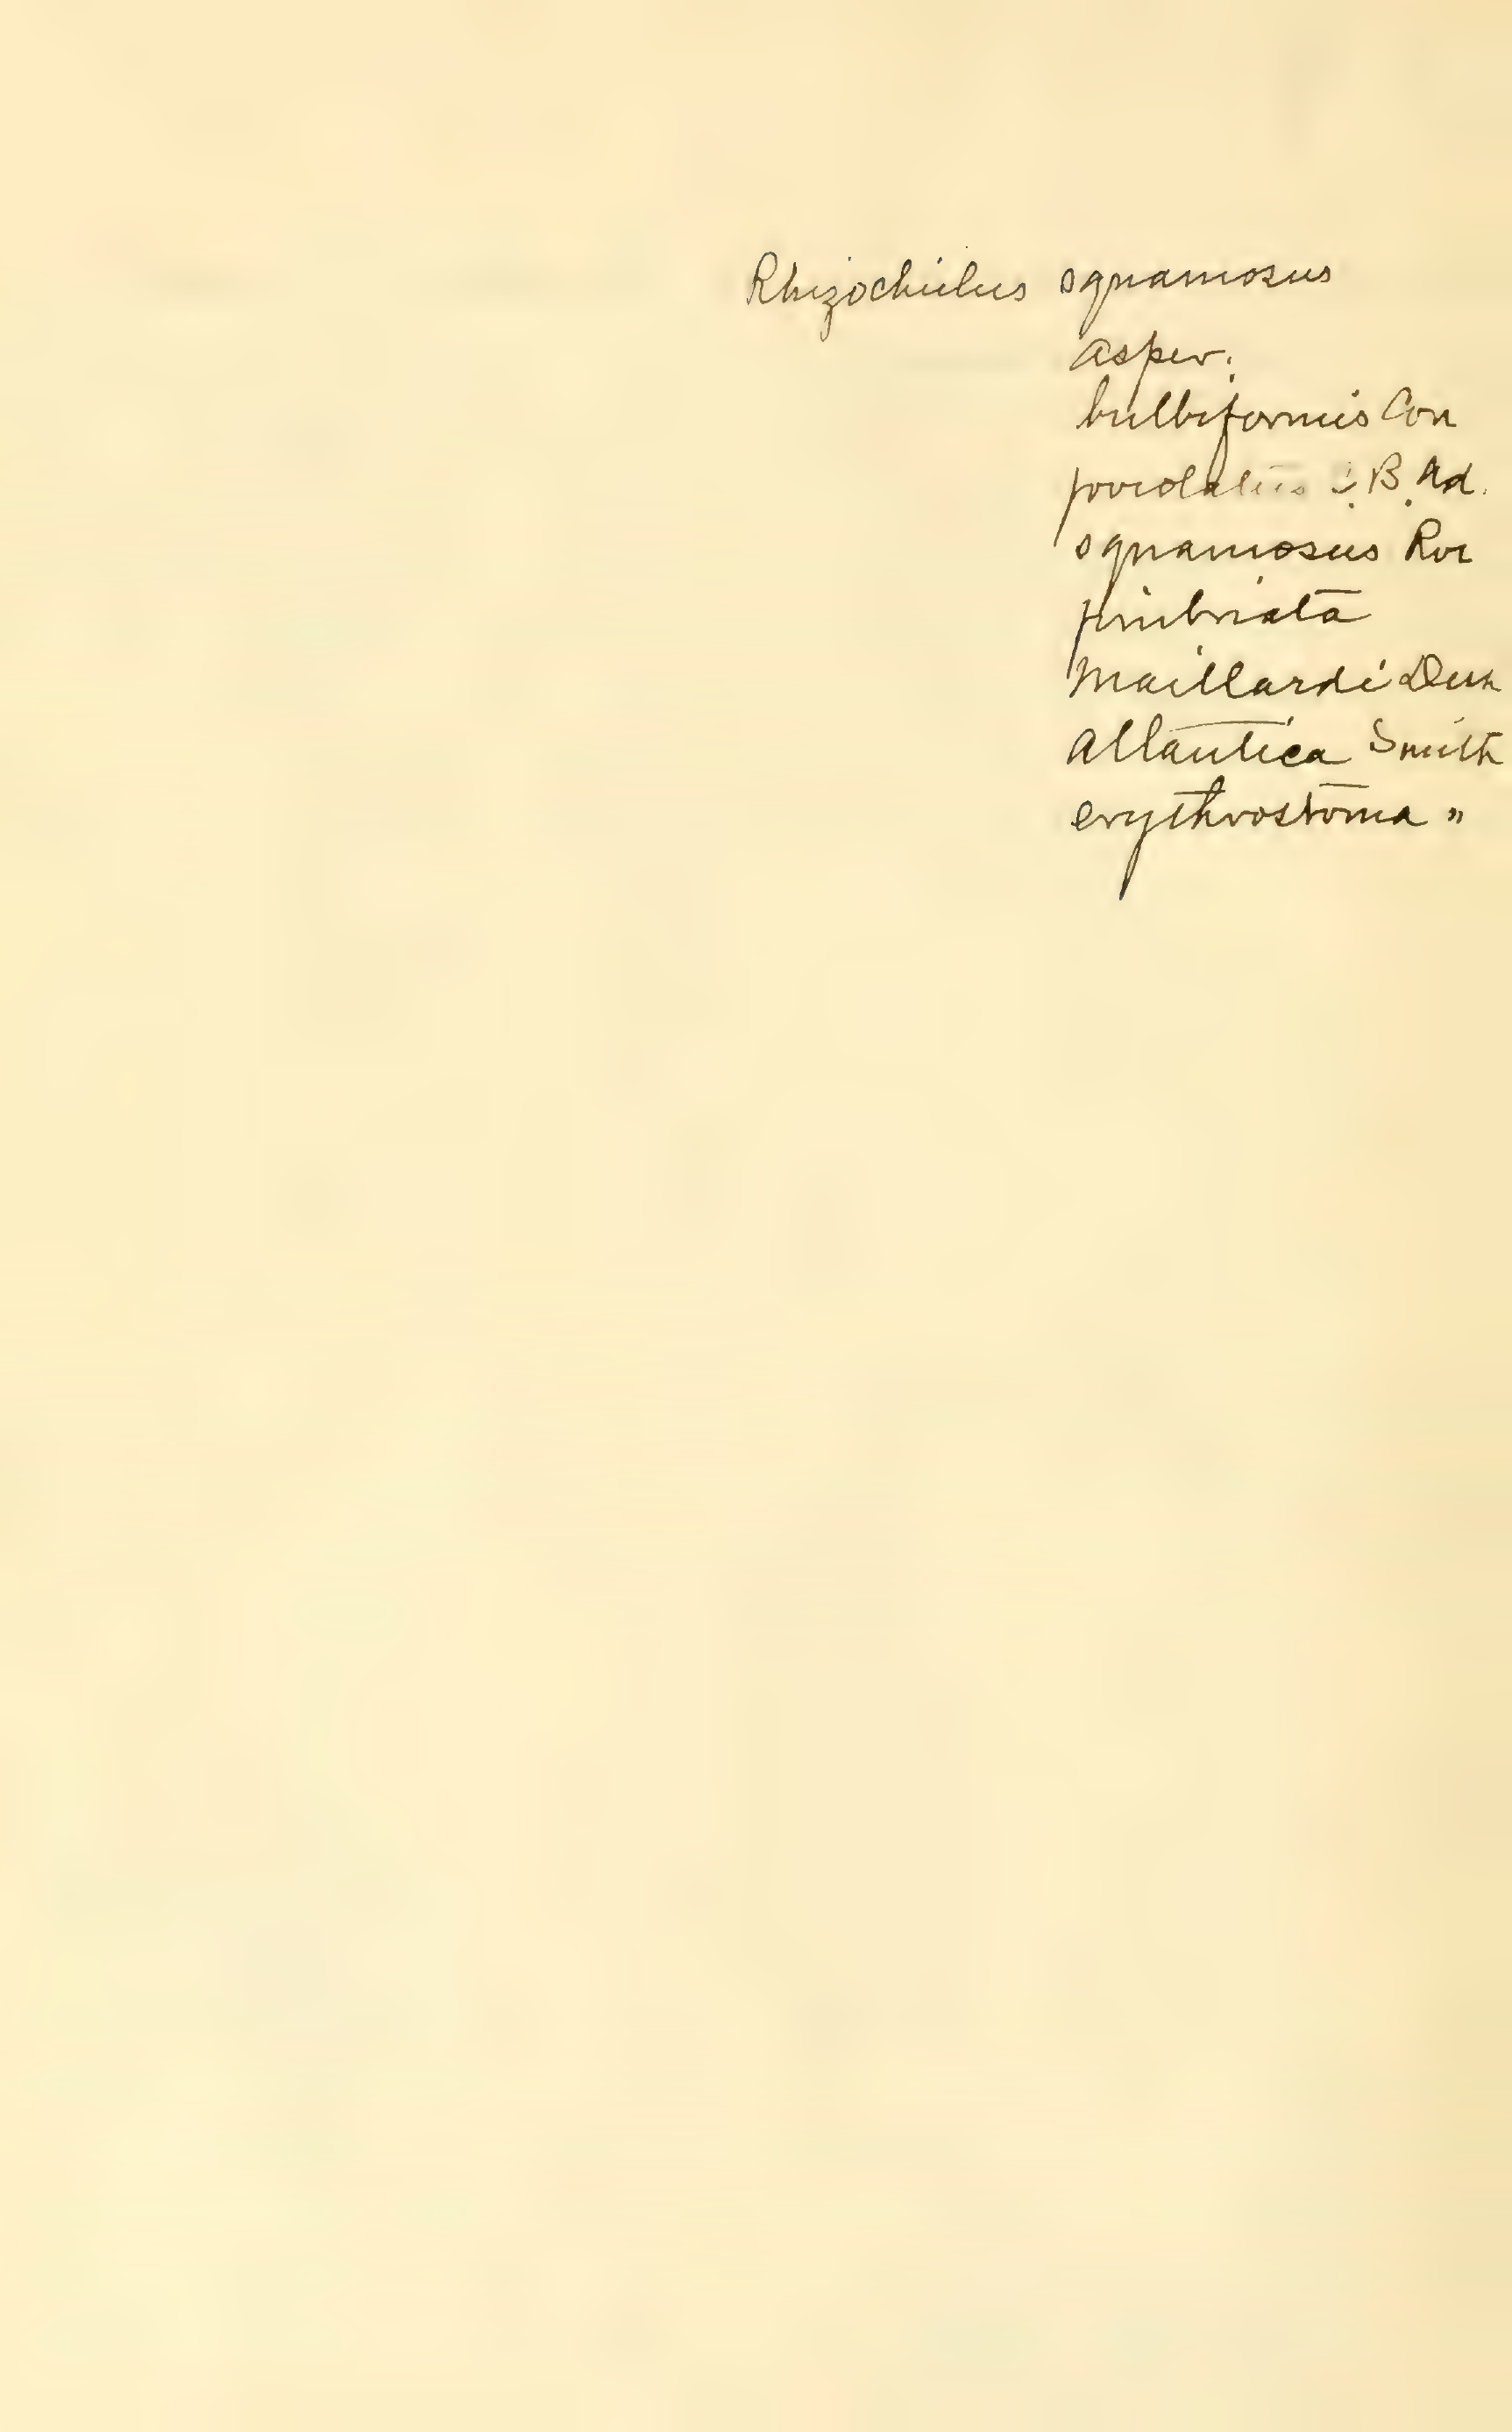 Rhizochilus squamosus
asper.
bulbiformis Con
foveolatus C. B. Ad.
squamosus Rve
fimbriata
Maillardi Desh
Atlantica Smith
erythrostoma "